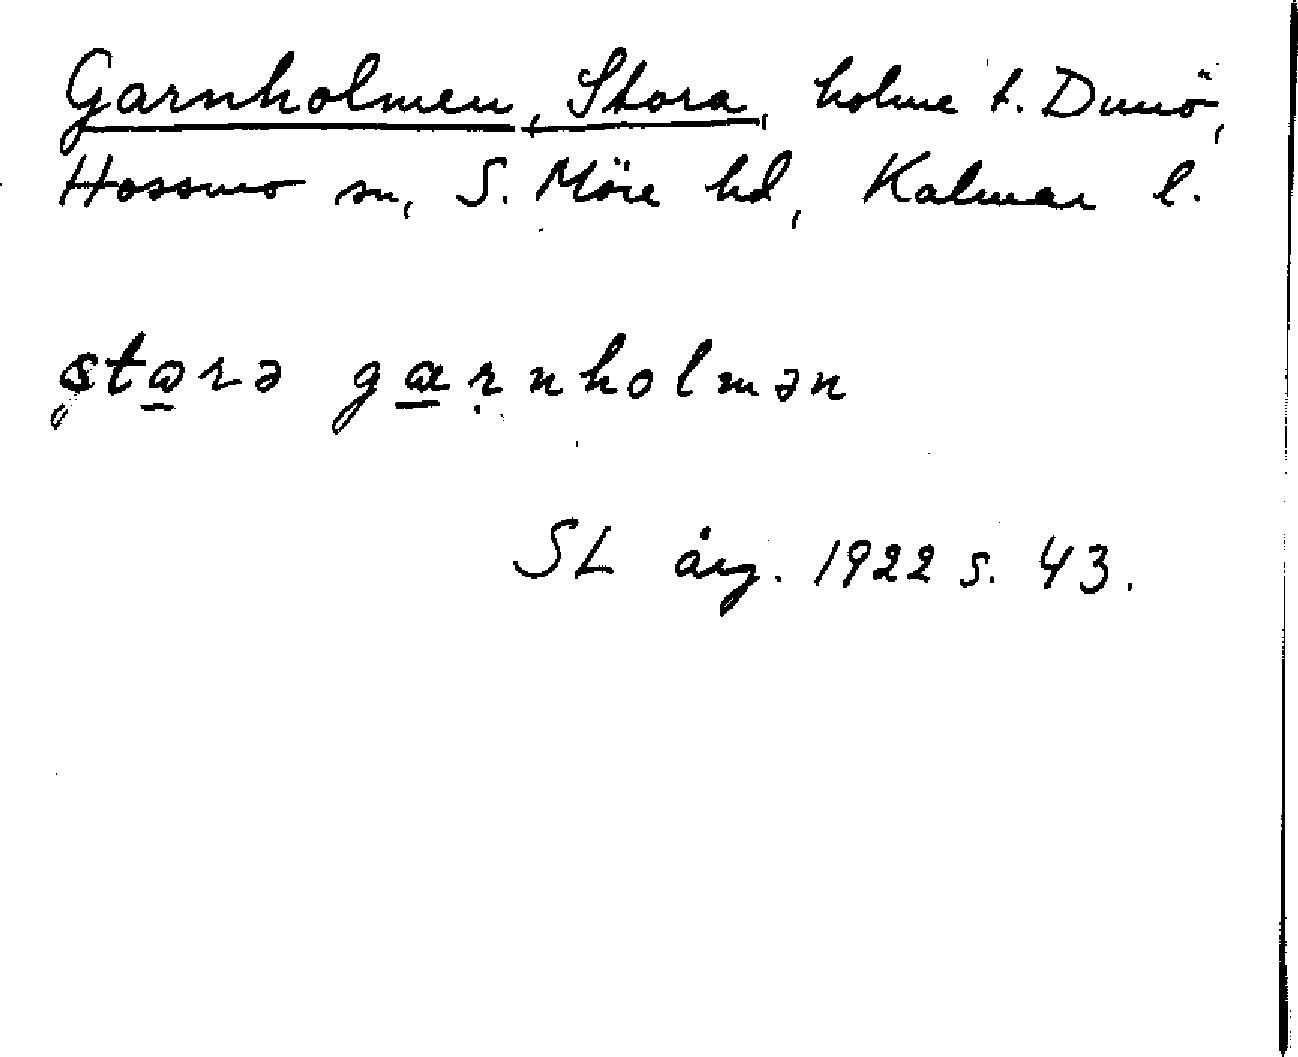 Garnholmen, Stora, holme t. Dunö,
Hossmo sn, S. Möre hd, Kalmar l.
stɷrə gɑrnholmən
SL årg. 1922 s. 43.